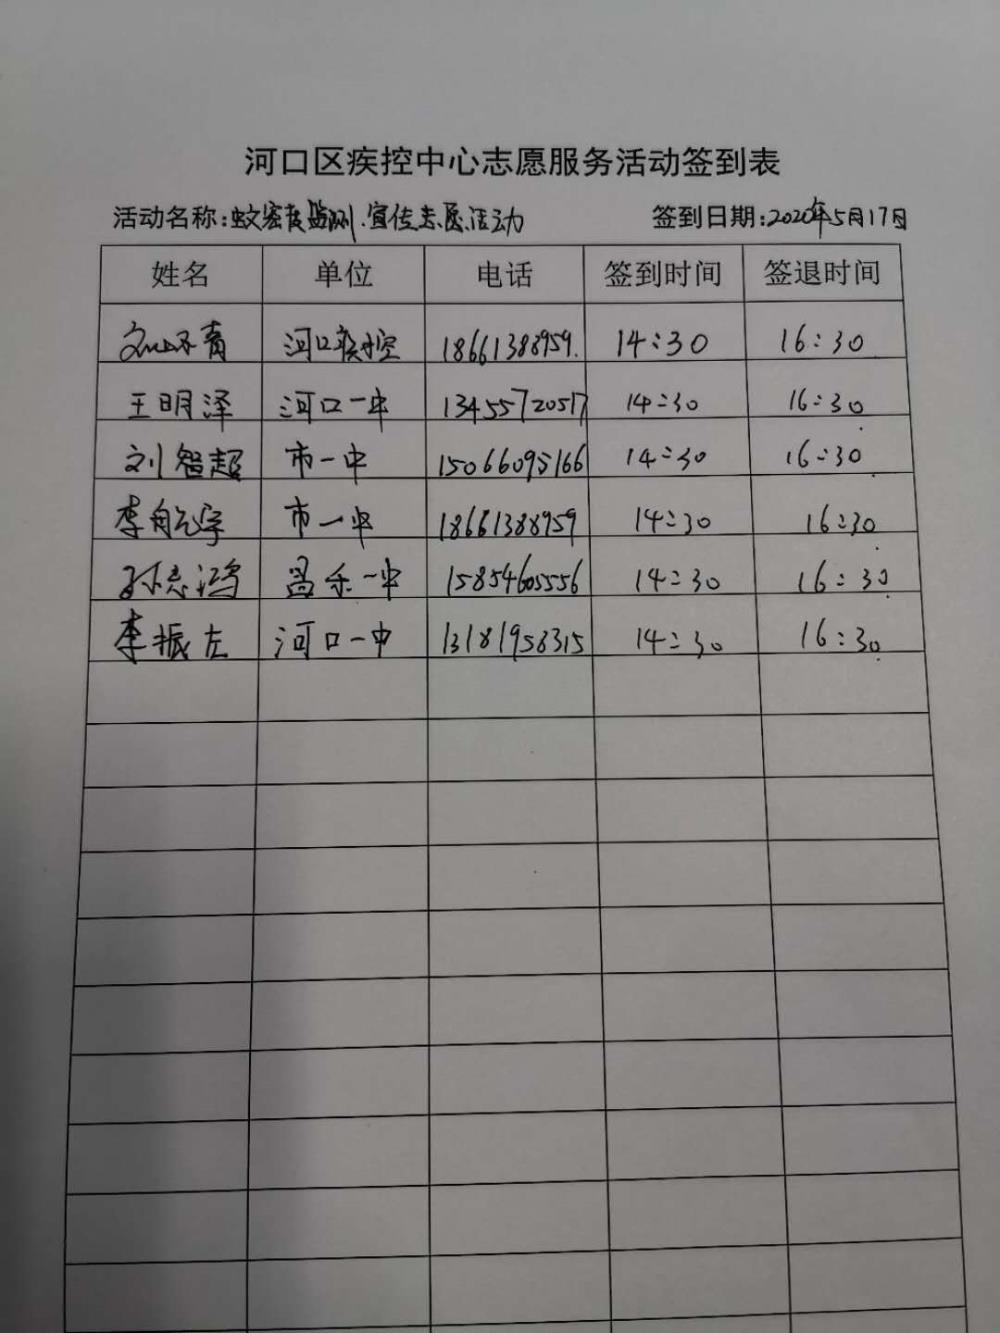 河口区疾控中心志愿服务活动签到表
活动名称:蚊密度监测.宣传志愿活动 签到日期:2020年5月17日
姓名 单位 电话 签到时间 签退时间
河口疾控 18661388959. 14:30 16:30
王明泽 河口一中 13455720517 14:30 16:30
刘智超 市一中 15066095166 14:30 16:30
李 市一中 18661388959 14:30 16:30
孙志鸿 昌乐一中 15854605556 14:30 16:30
李振左 河口一中 13181958315 14:30 16:30